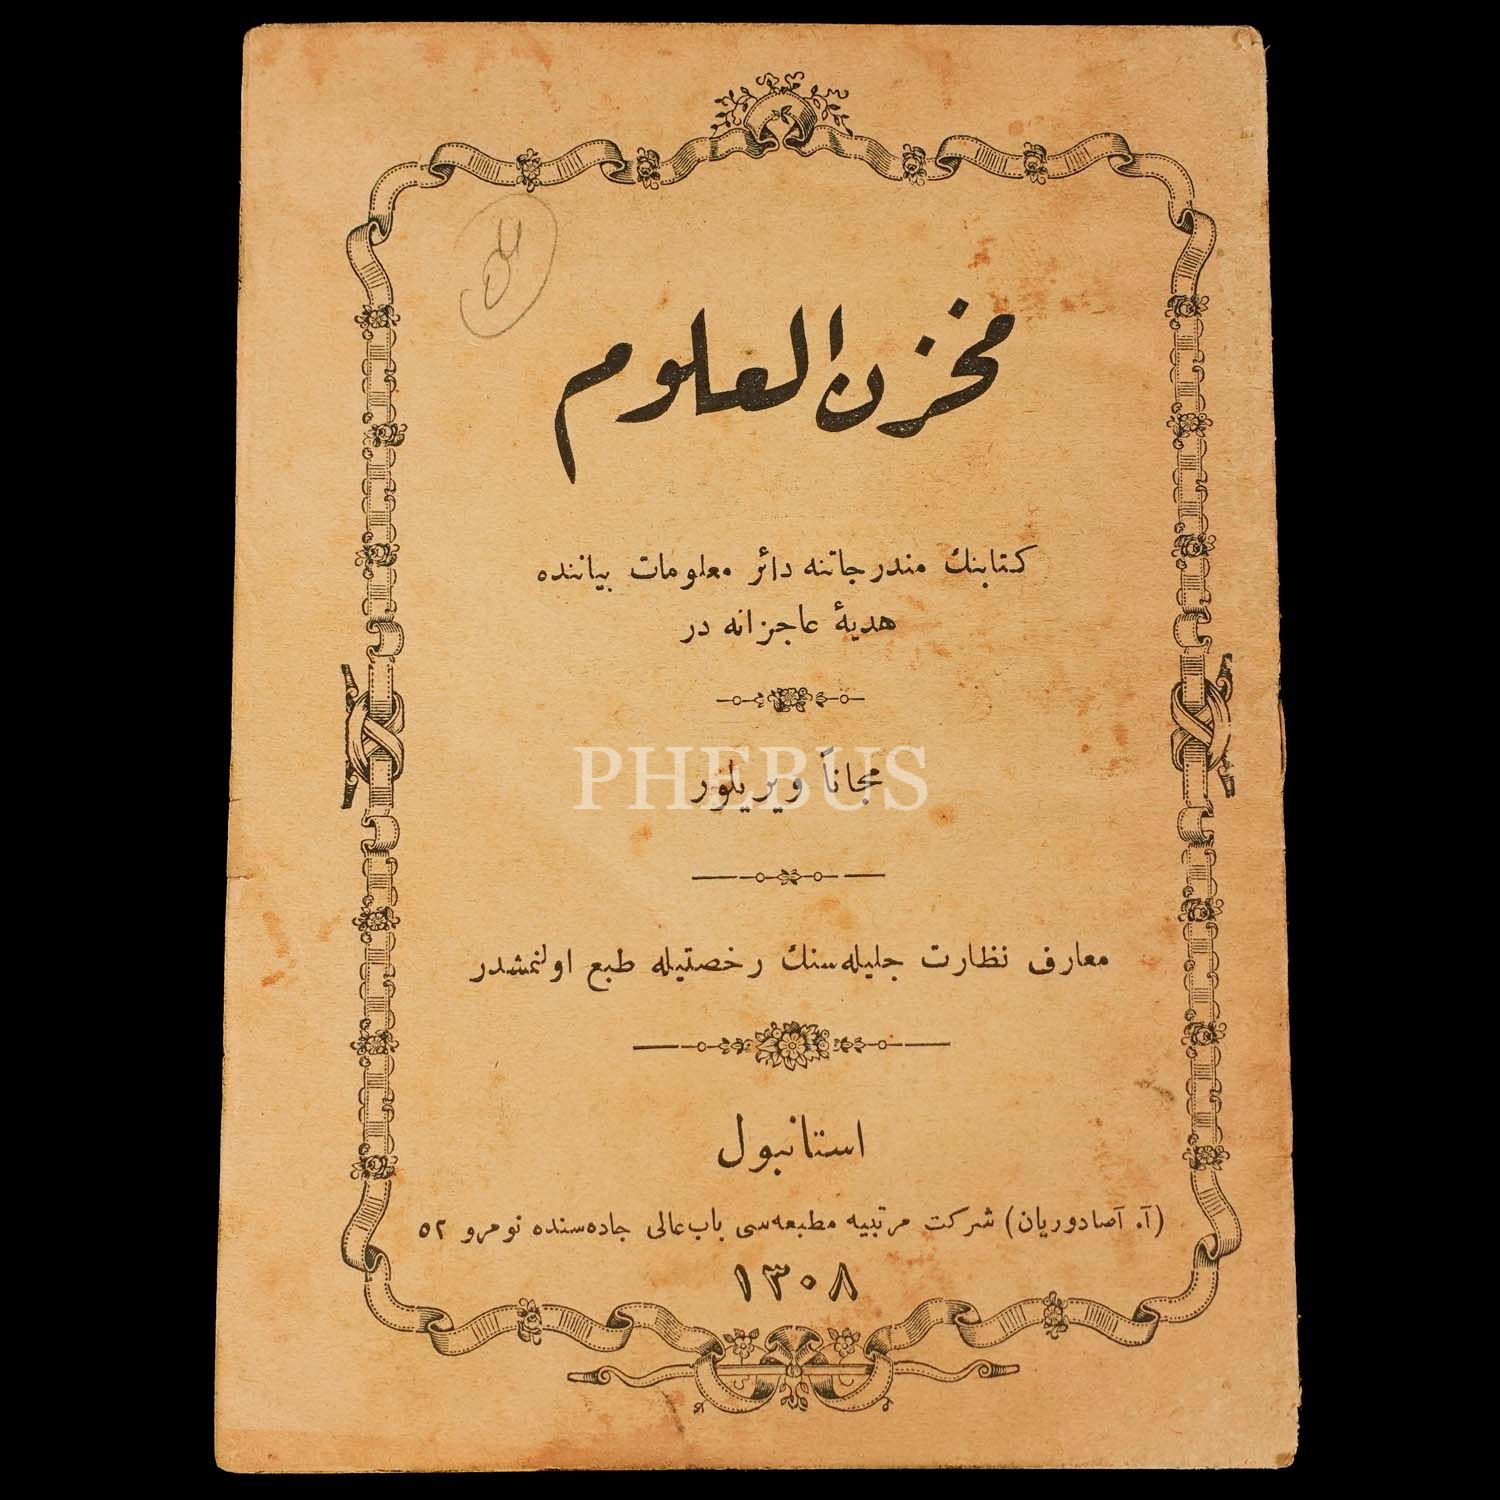 مخزن العلوم
كتابنك مندرجاتنه دائر معلومات بياننده
هديهٔ عاجزانه در
مجاناً ويريلور
PHEBUS
معارف نظارت جليله‌سنك رخصتيله طبع اولنمشدر
استانبول
(آ. آصادوريان) شركت مرتبيه مطبعه‌سى باب‌عالى جاده‌سنده نومرو ٥٢
١٣٠٨